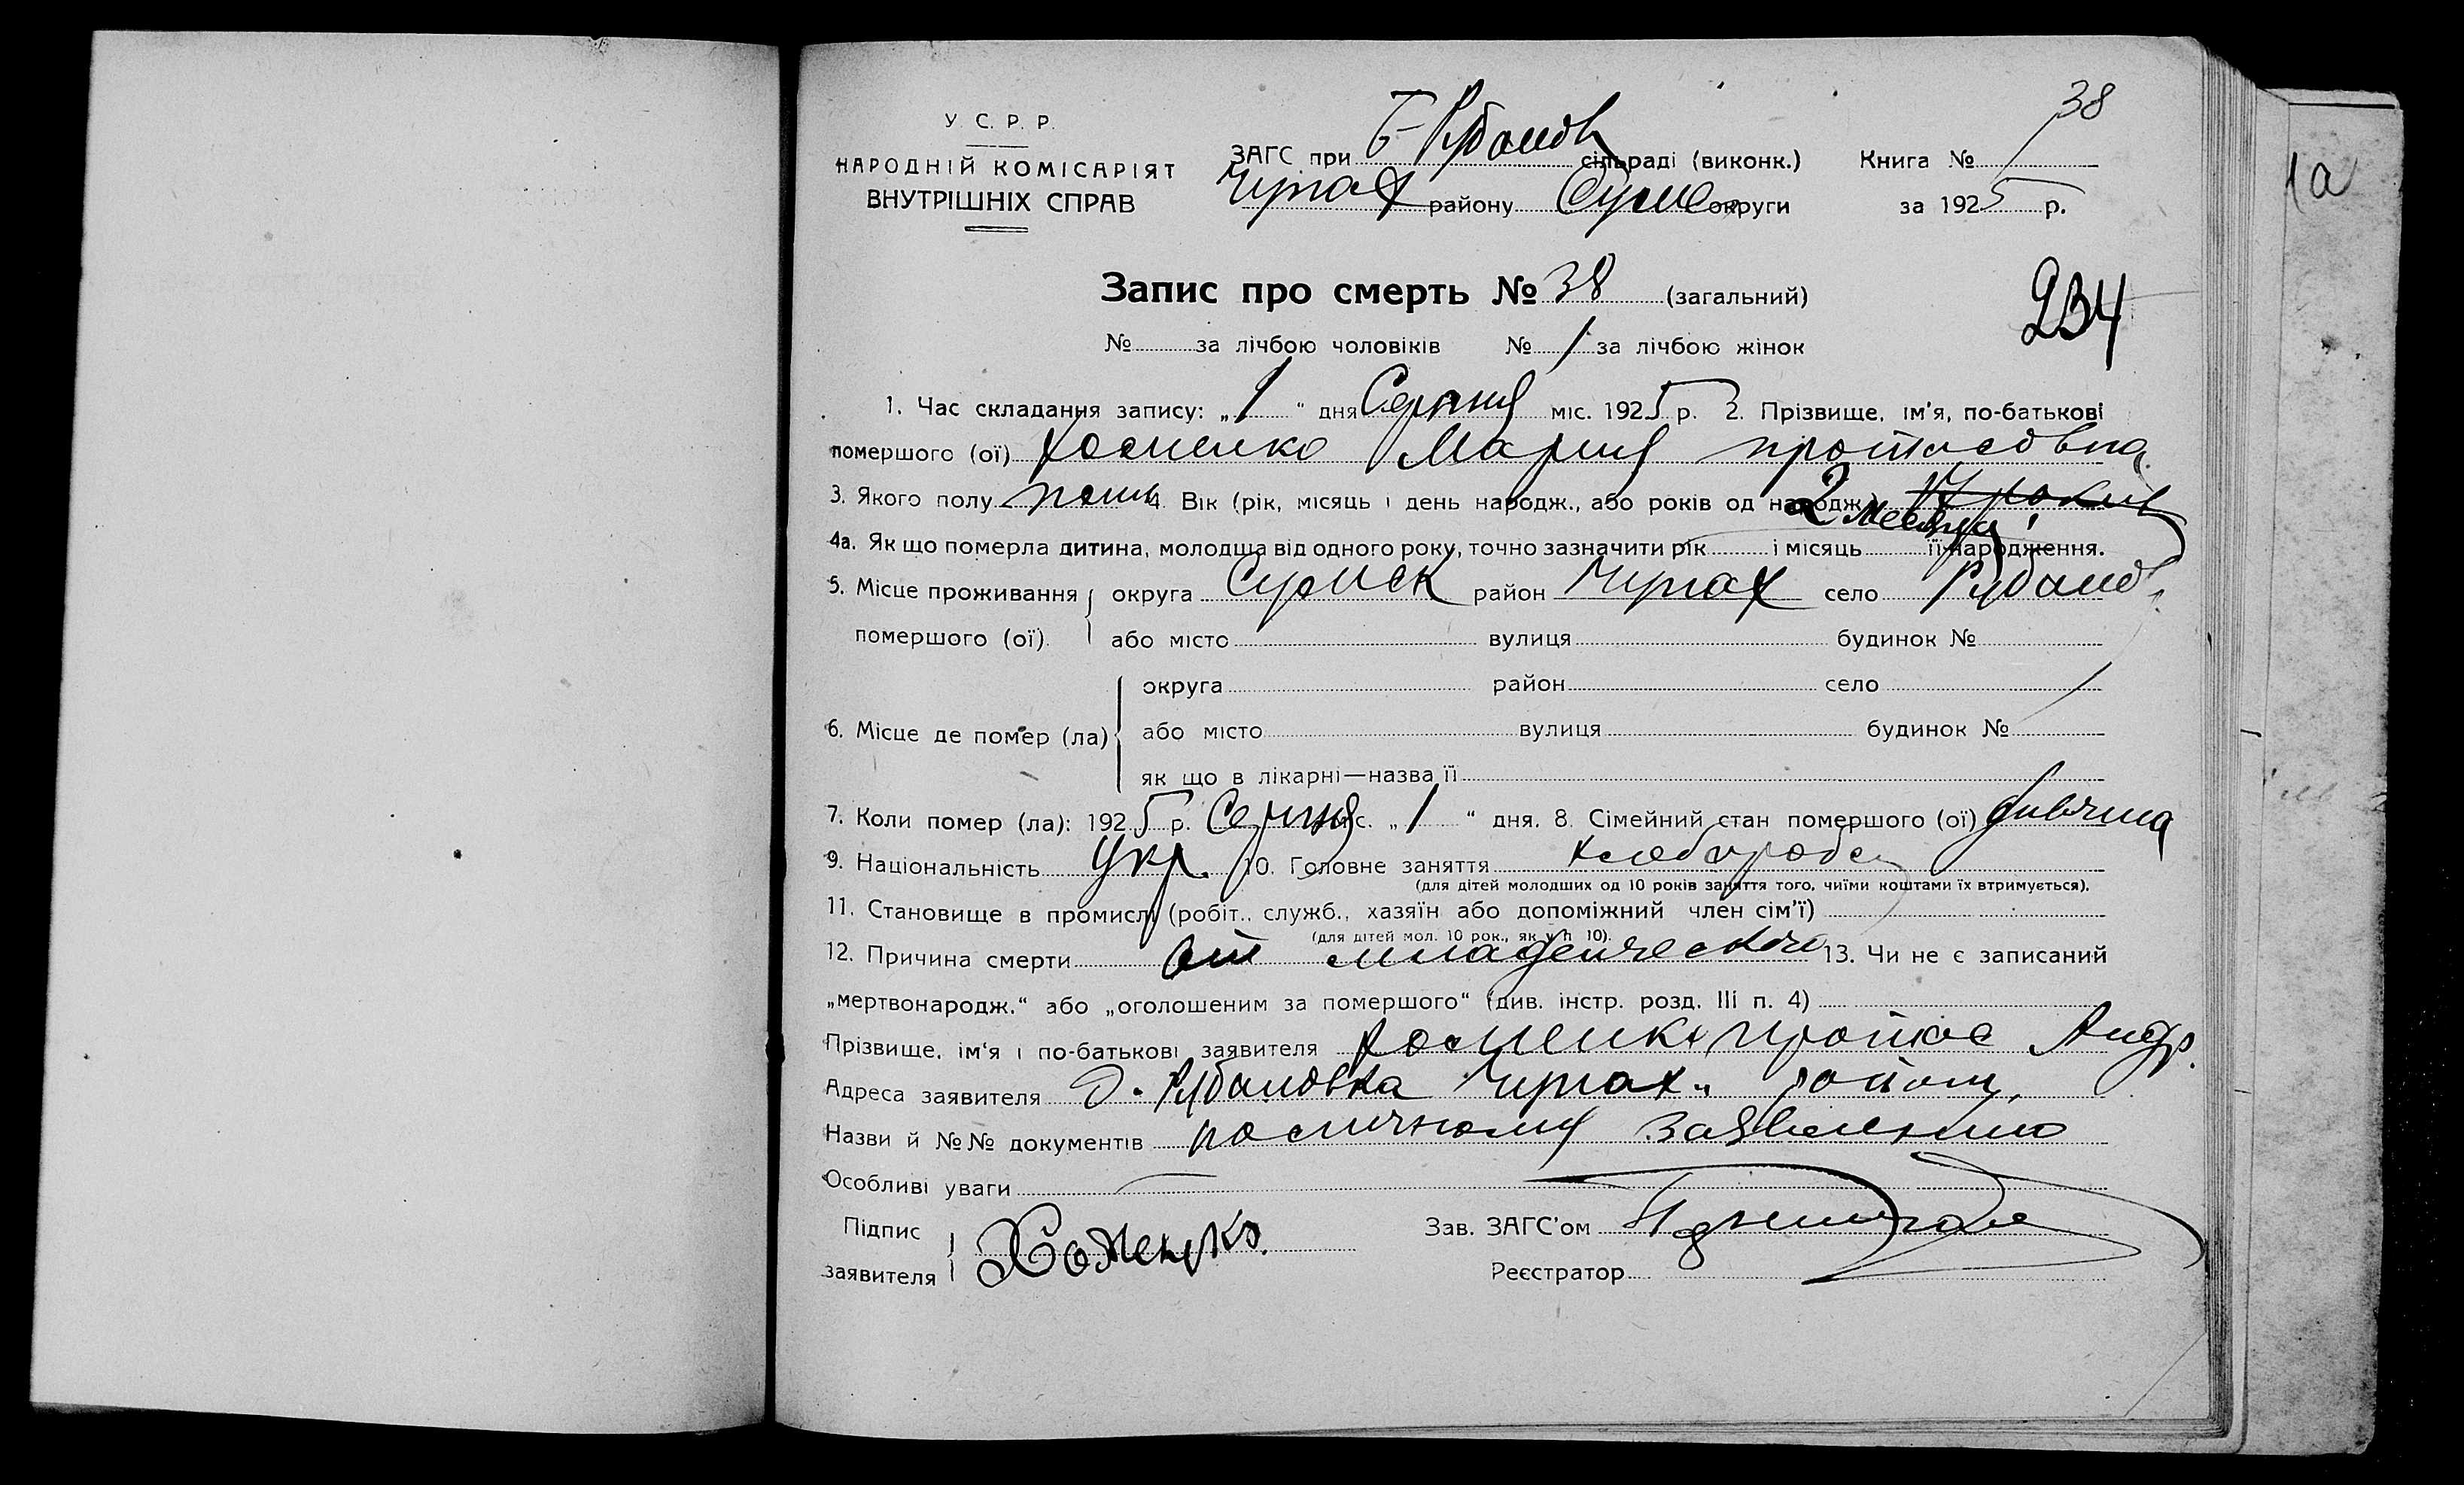 38
1а
У. С. Р. Р.
НАРОДНІЙ КОМІСАРІЯТ
ВНУТРІШНІХ СПРАВ
ЗАГС при Б-Рубанов сільраді (виконк.) Книга №
району Сумс округи за 1925 р.
Запис про смерть № 38 (загальний)
234
№ за лічбою чоловіків № 1 за лічбою жінок
1. Час складання запису: „ 1 “ дня Серпня міс. 1925 р. 2. Прізвище, ім'я, по-батькові
помершого (ої) Хоменко Мария протасовна
3. Якого полу 4. Вік (рік, місяць і день народж., або років од народж.)
2 месяца
4а. Як що померла дитина, молодша від одного року, точно зазначити рік і місяць її народження.
5. Місце проживання помершого (ої). округа Сумск район село Рубанов
або місто вулиця будинок №
6. Місце де помер (ла) округа район село
або місто вулиця будинок №
як що в лікарні—назва її
7. Коли помер (ла): 1925 р. Серпня міс. „ 1 “ дня. 8. Сімейний стан помершого (ої) дивчина
9. Національність Укр. 10. Головне заняття хлебороб
(для дітей молодших од 10 років заняття того, чиїми коштами їх втримується).
11. Становище в промислі (робіт., служб., хазяїн або допоміжний член сім'ї)
(для дітей мол. 10 рок., як у п 10).
12. Причина смерти от младенческого 13. Чи не є записаний
„мертвонародж.“ або „оголошеним за помершого“ (див. інстр. розд. III п. 4)
Прізвище, ім'я і по-батькові заявителя Хоменко Протас Андр.
Адреса заявителя д. Рубановка
Назви й №№ документів по личному заявлению
Особливі уваги
Підпис заявителя Хоменко. Зав. ЗАГС'ом
Реєстратор